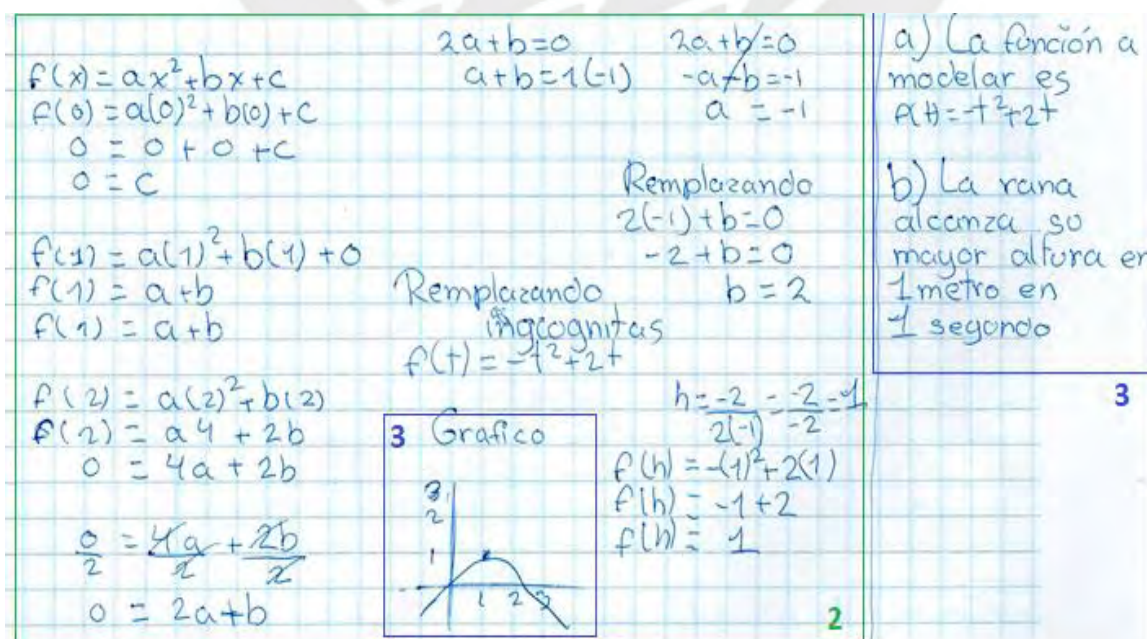 f(x) = ax²+bx+c
f(0) = a(0)²+b(0)+c
0 = 0 + 0 +c
0 = c
f(1) = a(1)²+b(1)+0
f(1) = a+b
f(1) = a+b
f(2) = a(2)²+b(2)
f(2) = a4 + 2b
0 = 4a + 2b
0/2 = 4a/2 + 2b/2
0 = 2a+b
2a+b=0
a+b=1(-1)
2a+b=0
-a-b=-1
a = -1
Remplazando
2(-1)+b=0
-2+b=0
b = 2
Remplazando
ingcognitas
f(t) = -t²+2t
3 Grafico
3
2
1
1 2 3
h = -2/2(-1) = -2/-2 = 1
f(h) = -(1)²+2(1)
f(h) = -1+2
f(h) = 1
2
a) La función a
modelar es
f(t)=-t²+2t
b) La rana
alcanza su
mayor altura en
1 metro en
1 segundo
3